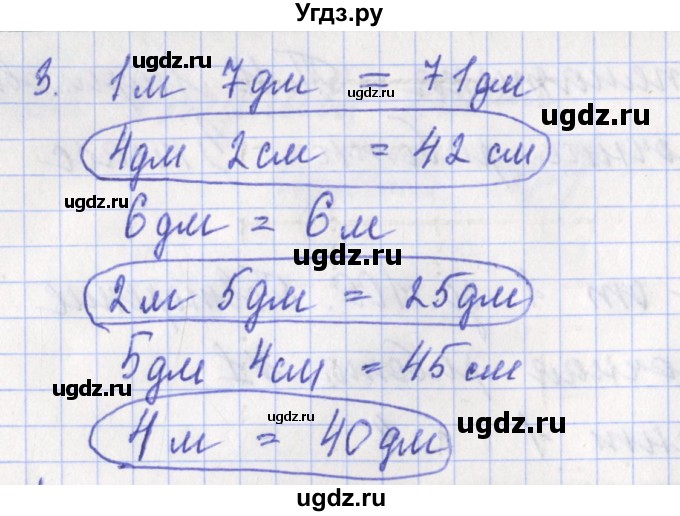 Угдз.ру
3. 1м 7дм = 71дм
4дм 2см = 42см
6дм = 6м
2м 5дм = 25дм
5дм 4см = 45см
4м = 40дм
ugdz.ru
ugdz.ru
ugdz.ru
ugdz.ru
ugdz.ru
ugdz.ru
ugdz.ru
ugdz.ru
ugdz.ru
ugdz.ru
ugdz.ru
ugdz.ru